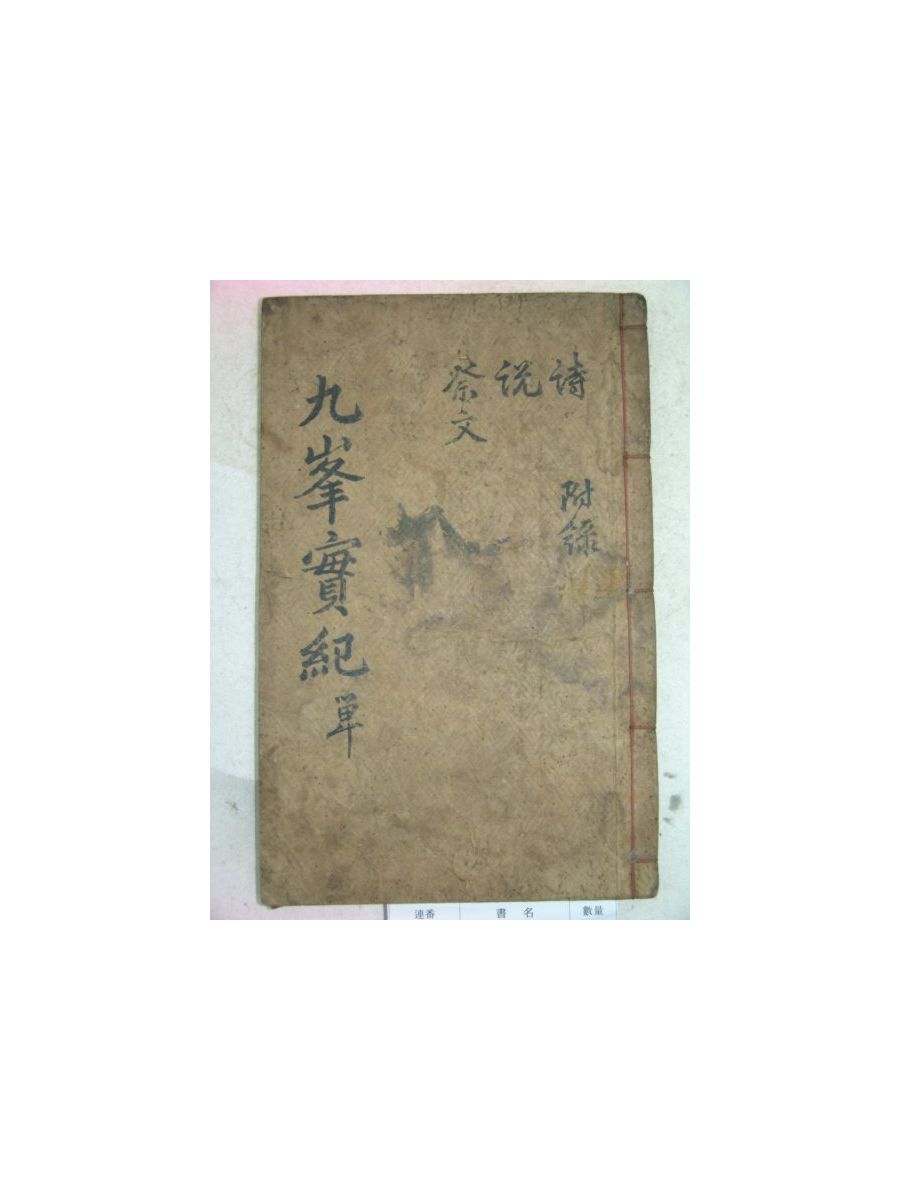 詩 附錄
説
祭文
九峯實紀 単
連番 書名 數量